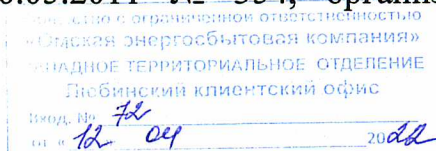 № 354,
ограниченной ответственностью
«Омская энергосбытовая компания»
ЗАПАДНОЕ ТЕРРИТОРИАЛЬНОЕ ОТДЕЛЕНИЕ
Любинский клиентский офис
Вход. № 72
от « 12 04 2022